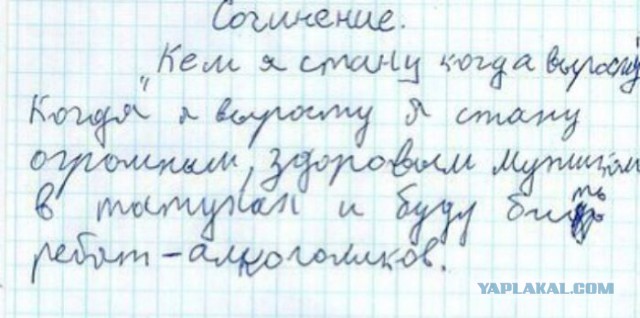 Сочинение.
"Кем я стану когда вырасту"
Когда я вырасту я стану
огромным, здоровым мужиком
в татухах и буду бить
ребят-алкоголиков.
YAPLAKAL.COM